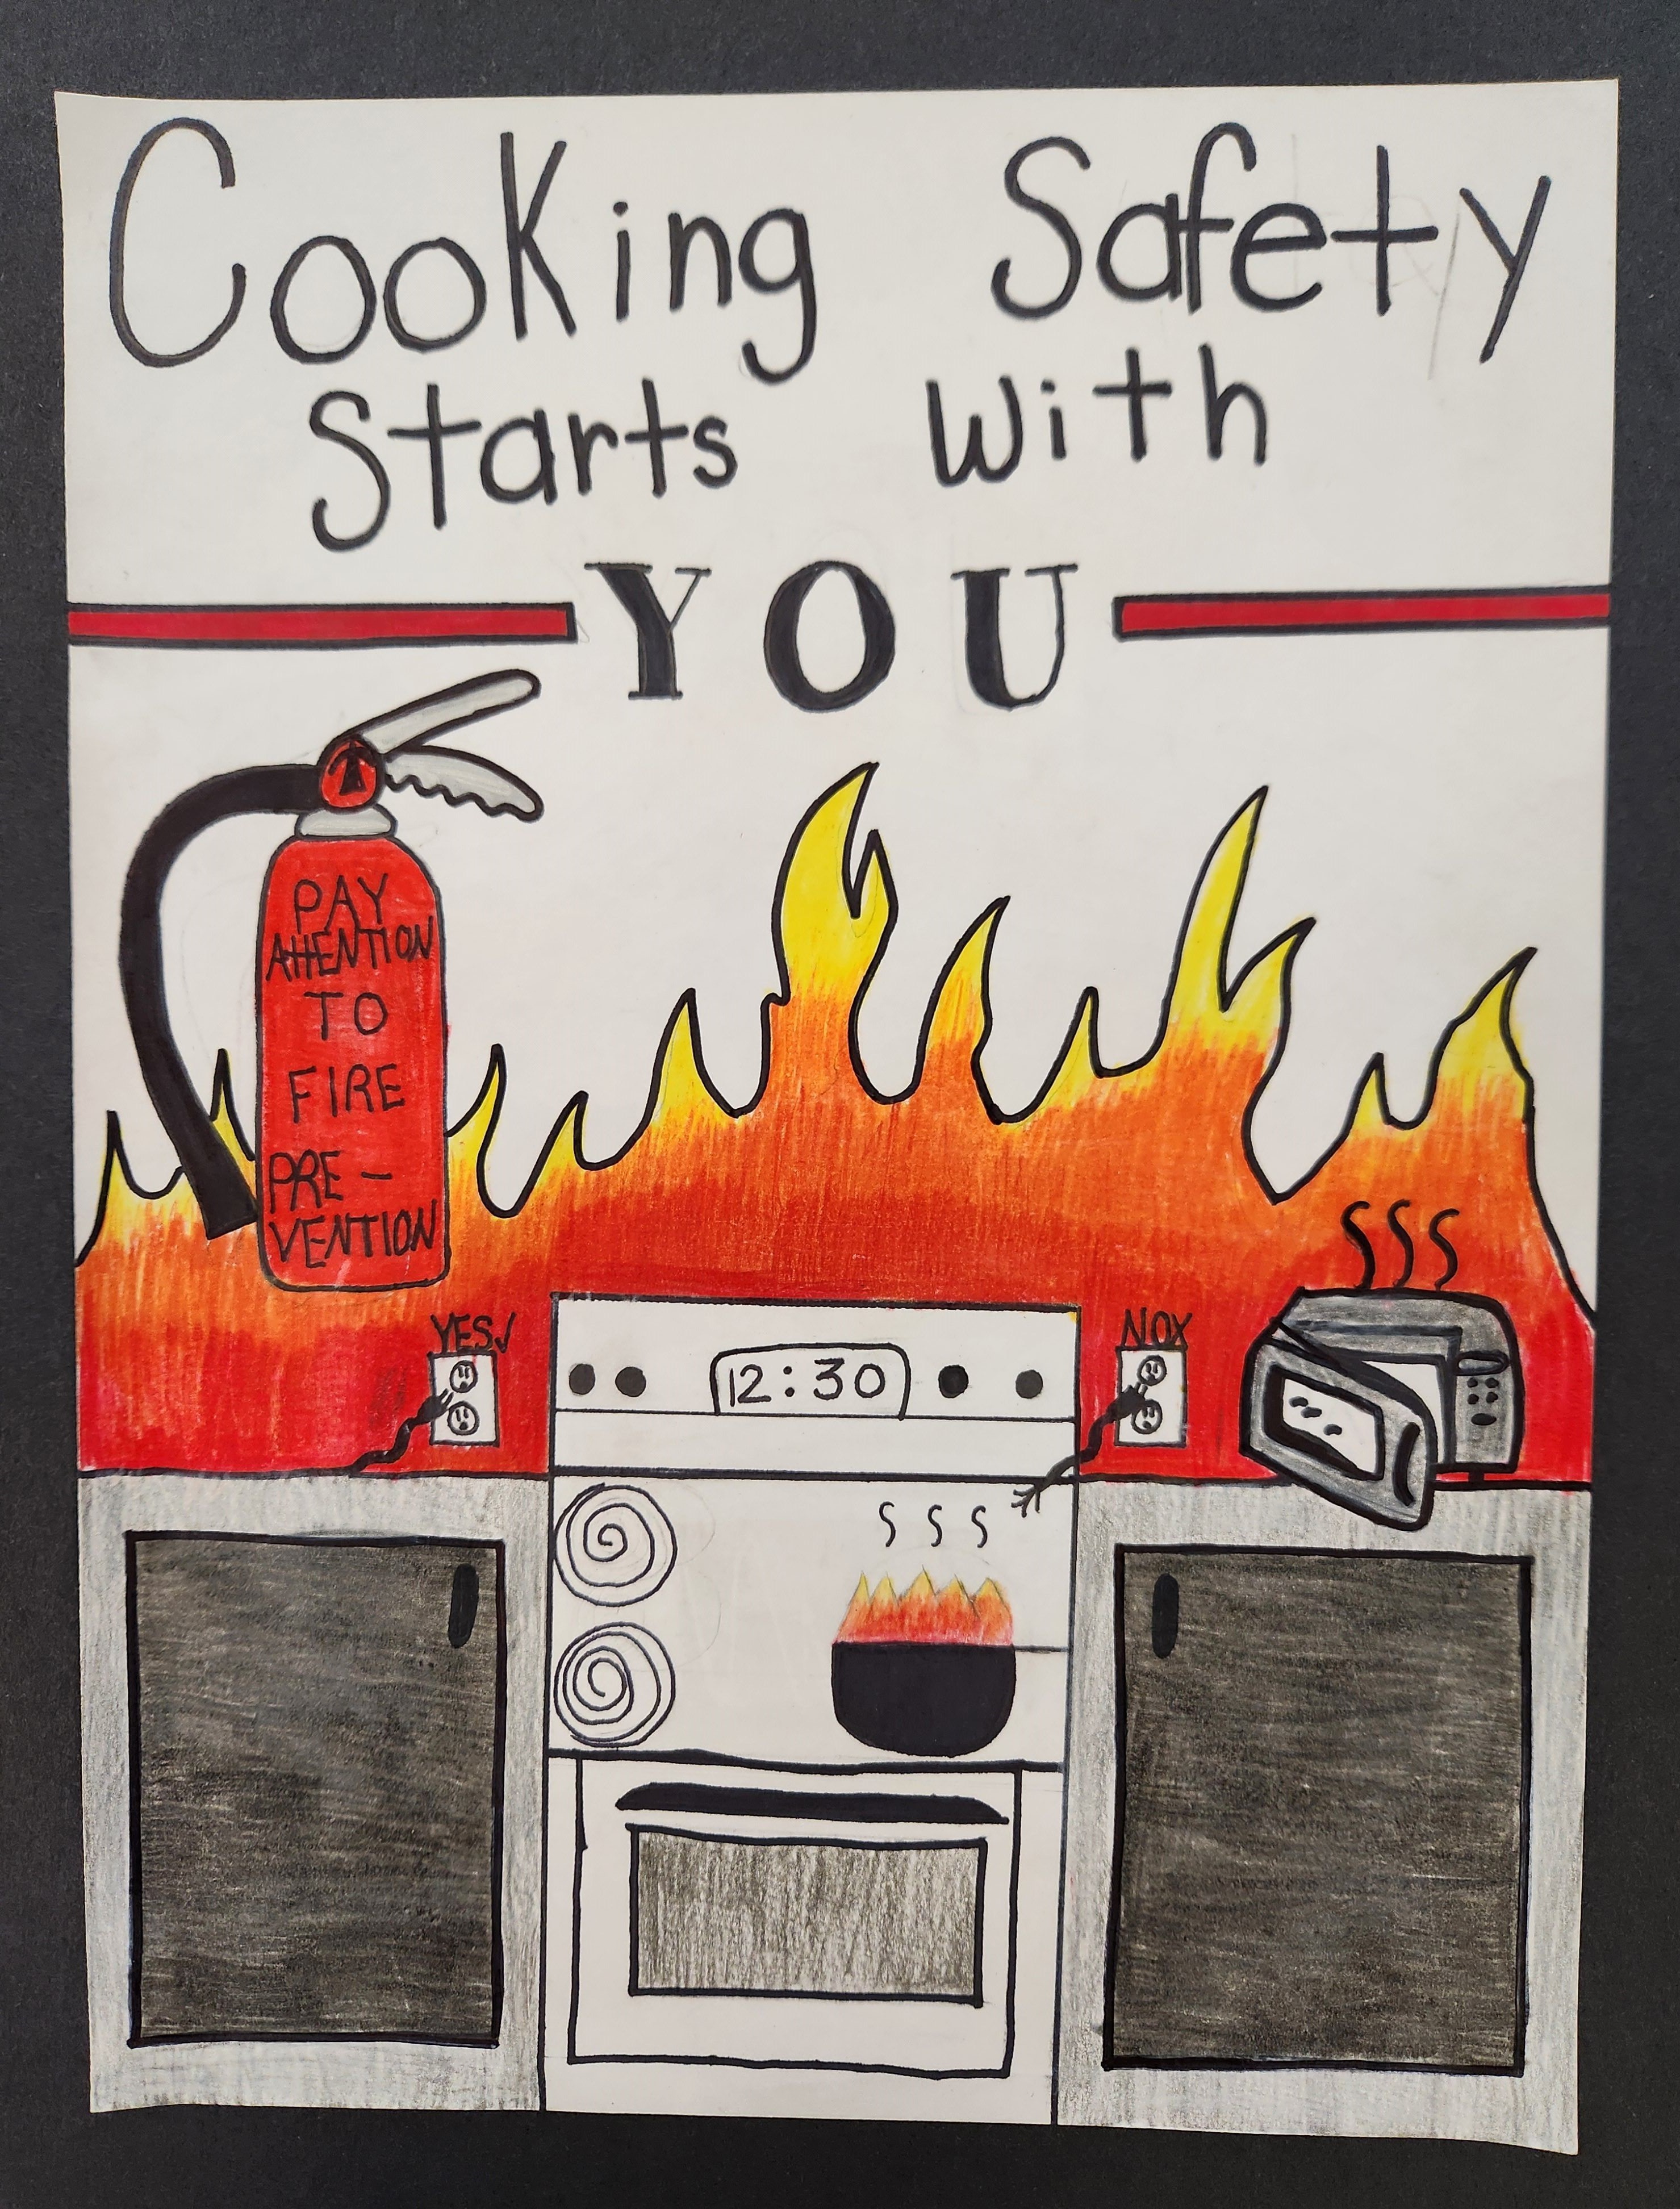 Cooking Safety
Starts with
YOU
PAY
ATTENTION
TO
FIRE
PRE-
VENTION
YES✓
NO X
12:30